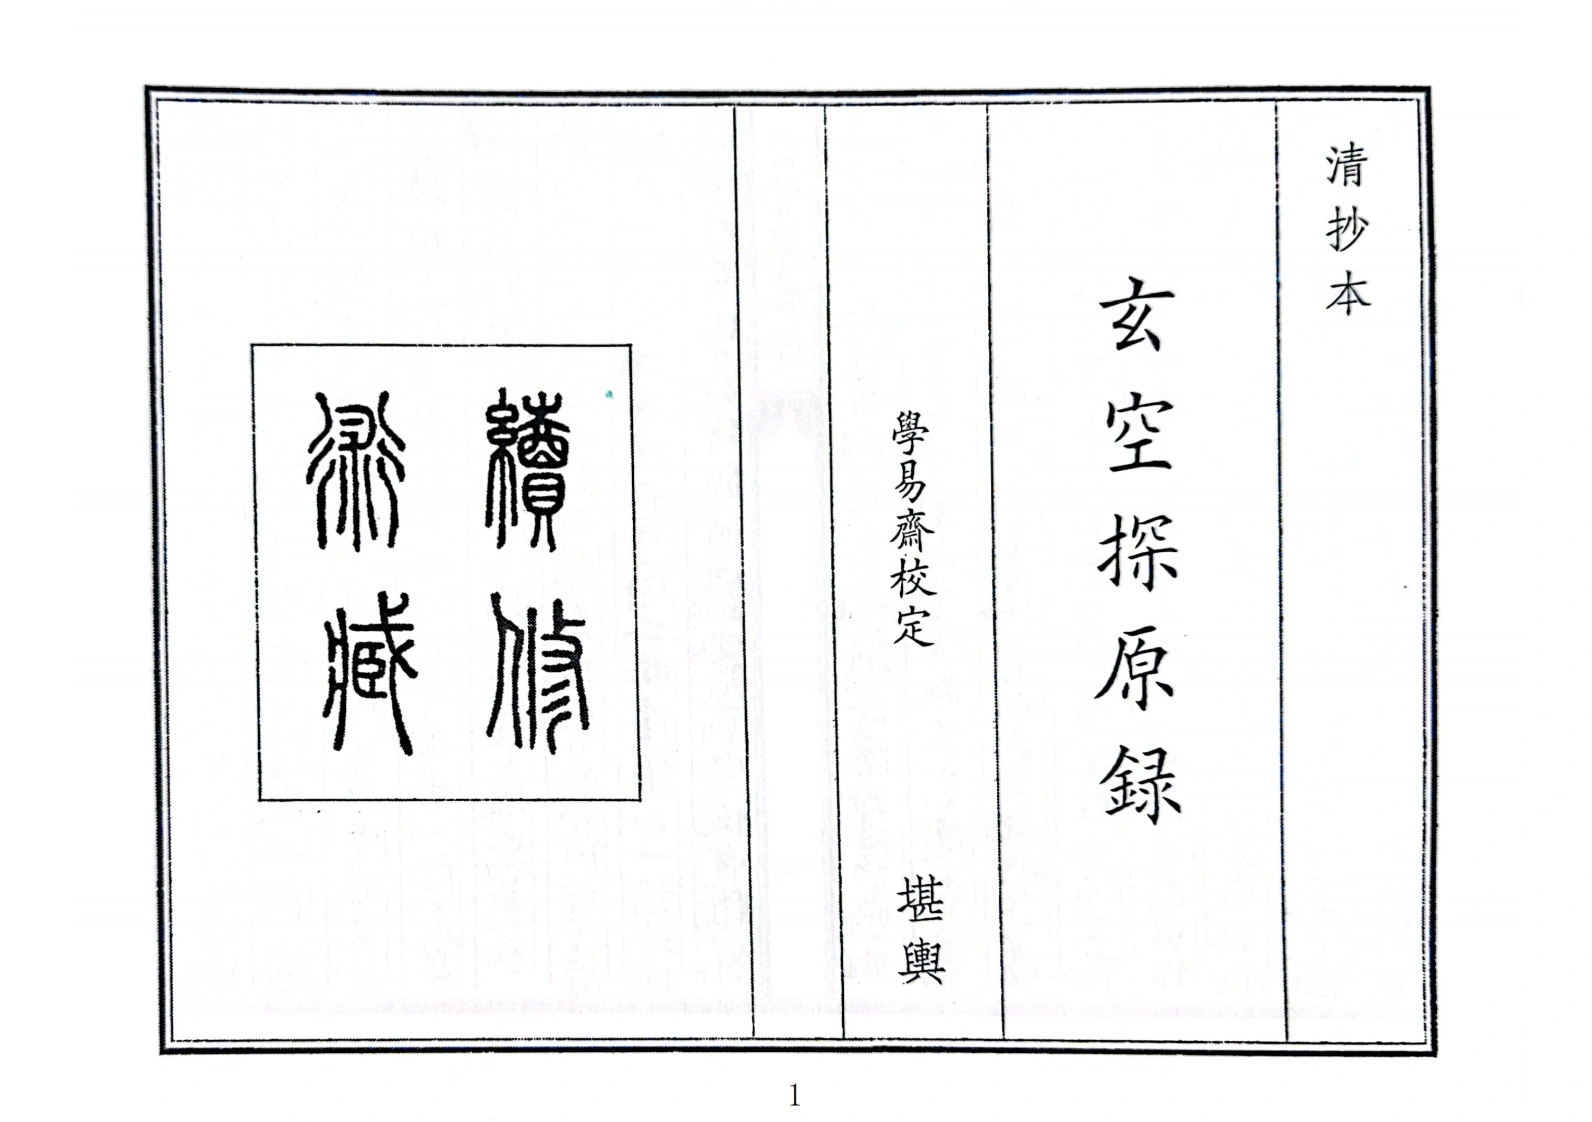 清抄本
玄空探原録
學易齋校定
堪輿
續修
術藏
1